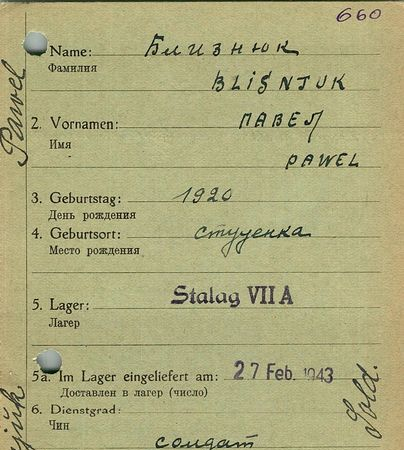 660
1. Name: Близнюк
Фамилия
BLISNJUK
2. Vornamen: ПАВЕЛ
Имя
PAWEL
3. Geburtstag: 1920
День рождения
4. Geburtsort: Студенка
Место рождения
5. Lager: Stalag VII A
Лагер
5a. Im Lager eingeliefert am: 27 Feb. 1943
Доставлен в лагер (число)
6. Dienstgrad:
Чин
солдат
Pawel
Sold.